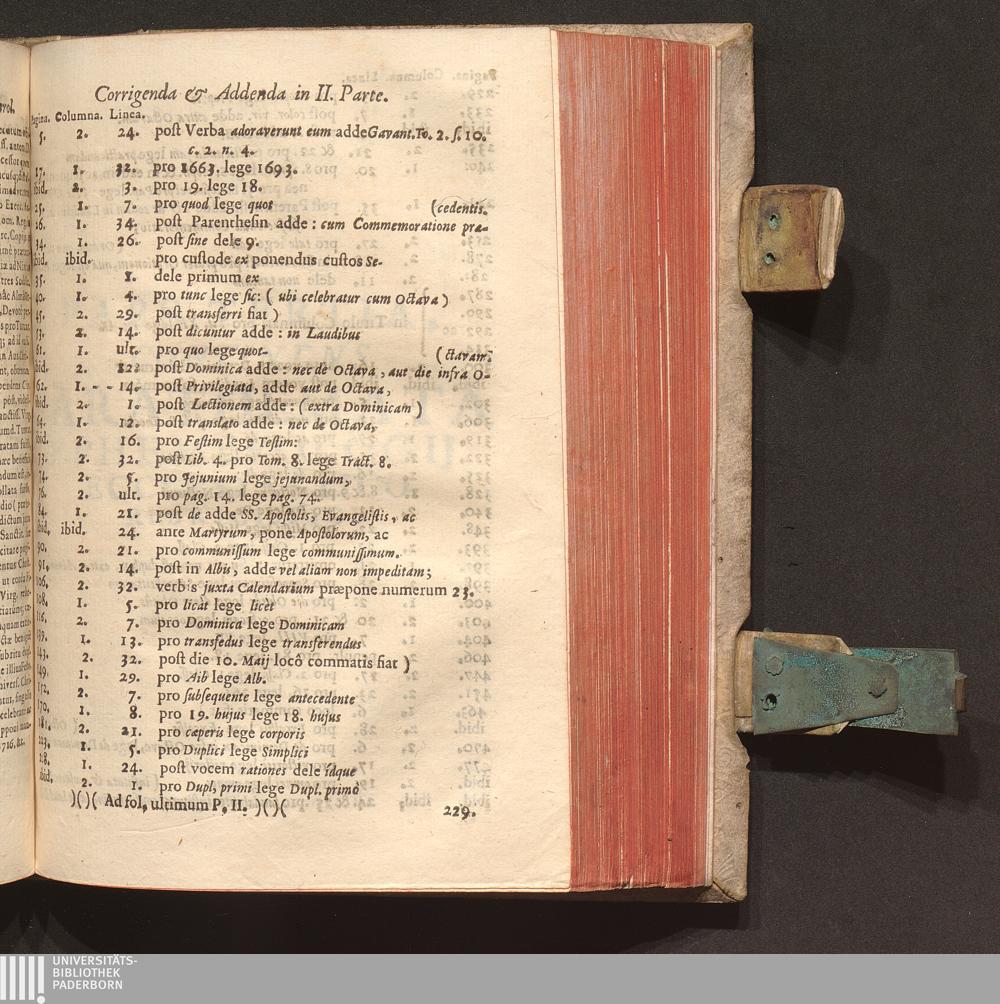 Corrigenda & Addenda in II. Parte.
Pagina. Columna. Linea.
5. 2. 24. poſt Verba adoraverunt eum adde Gavant. To. 2. ſ. 10.
c. 2. n. 4.
17. 1. 32. pro 1663. lege 1693.
ibid. 2. 3. pro 19. lege 18.
25. 1. 7. pro quod lege quot (cedentis.
26. 1. 34. poſt Parentheſin adde : cum Commemoratione præ-
34. 1. 26. poſt ſine dele 9.
ibid. ibid. pro cuſtode ex ponendus cuſtos Se-
35. 1. 1. dele primum ex
40. 1. 4. pro tunc lege ſic: ( ubi celebratur cum Octava )
45. 2. 29. poſt transferri fiat )
53. 2. 14. poſt dicuntur adde : in Laudibus
61. 1. ult. pro quo lege quot- (ctavam.
ibid. 2. 12. poſt Dominica adde : nec de Octava, aut die infra O-
62. 1. - - 14. poſt Privilegiata, adde aut de Octava,
ibid. 2. 1. poſt Lectionem adde : ( extra Dominicam )
64. 1. 12. poſt translato adde : nec de Octava,
ibid. 2. 16. pro Feſtim lege Teſtim:
73. 2. 32. poſt Lib. 4. pro Tom. 8. lege Tract. 8.
74. 2. 5. pro Jejunium lege jejunandum,
76. 2. ult. pro pag. 14. lege pag. 74.
84. 1. 21. poſt de adde SS. Apoſtolis, Evangeliſtis, ac
ibid. ibid. 24. ante Martyrum, pone Apoſtolorum, ac
90. 2. 21. pro communiſſum lege communiſſimum.
91. 2. 14. poſt in Albis, adde vel aliam non impeditam;
106. 2. 32. verbis juxta Calendarium præpone numerum 23.
108. 1. 5. pro licat lege licèt
116. 2. 7. pro Dominica lege Dominicam
139. 1. 13. pro transfedus lege transferendus
143. 2. 32. poſt die 10. Maij locô commatis fiat )
149. 1. 29. pro Aib lege Alb.
152. 2. 7. pro ſubſequente lege antecedente
170. 1. 8. pro 19. hujus lege 18. hujus
181. 2. 21. pro cæperis lege corporis
223. 1. 5. pro Duplici lege Simplici
228. 1. 24. poſt vocem rationes dele idque
ibid. 2. 1. pro Dupl, primi lege Dupl. primô
)( )( Ad fol, ultimum P, II. )( )( 229.
UNIVERSITÄTS-
BIBLIOTHEK
PADERBORN